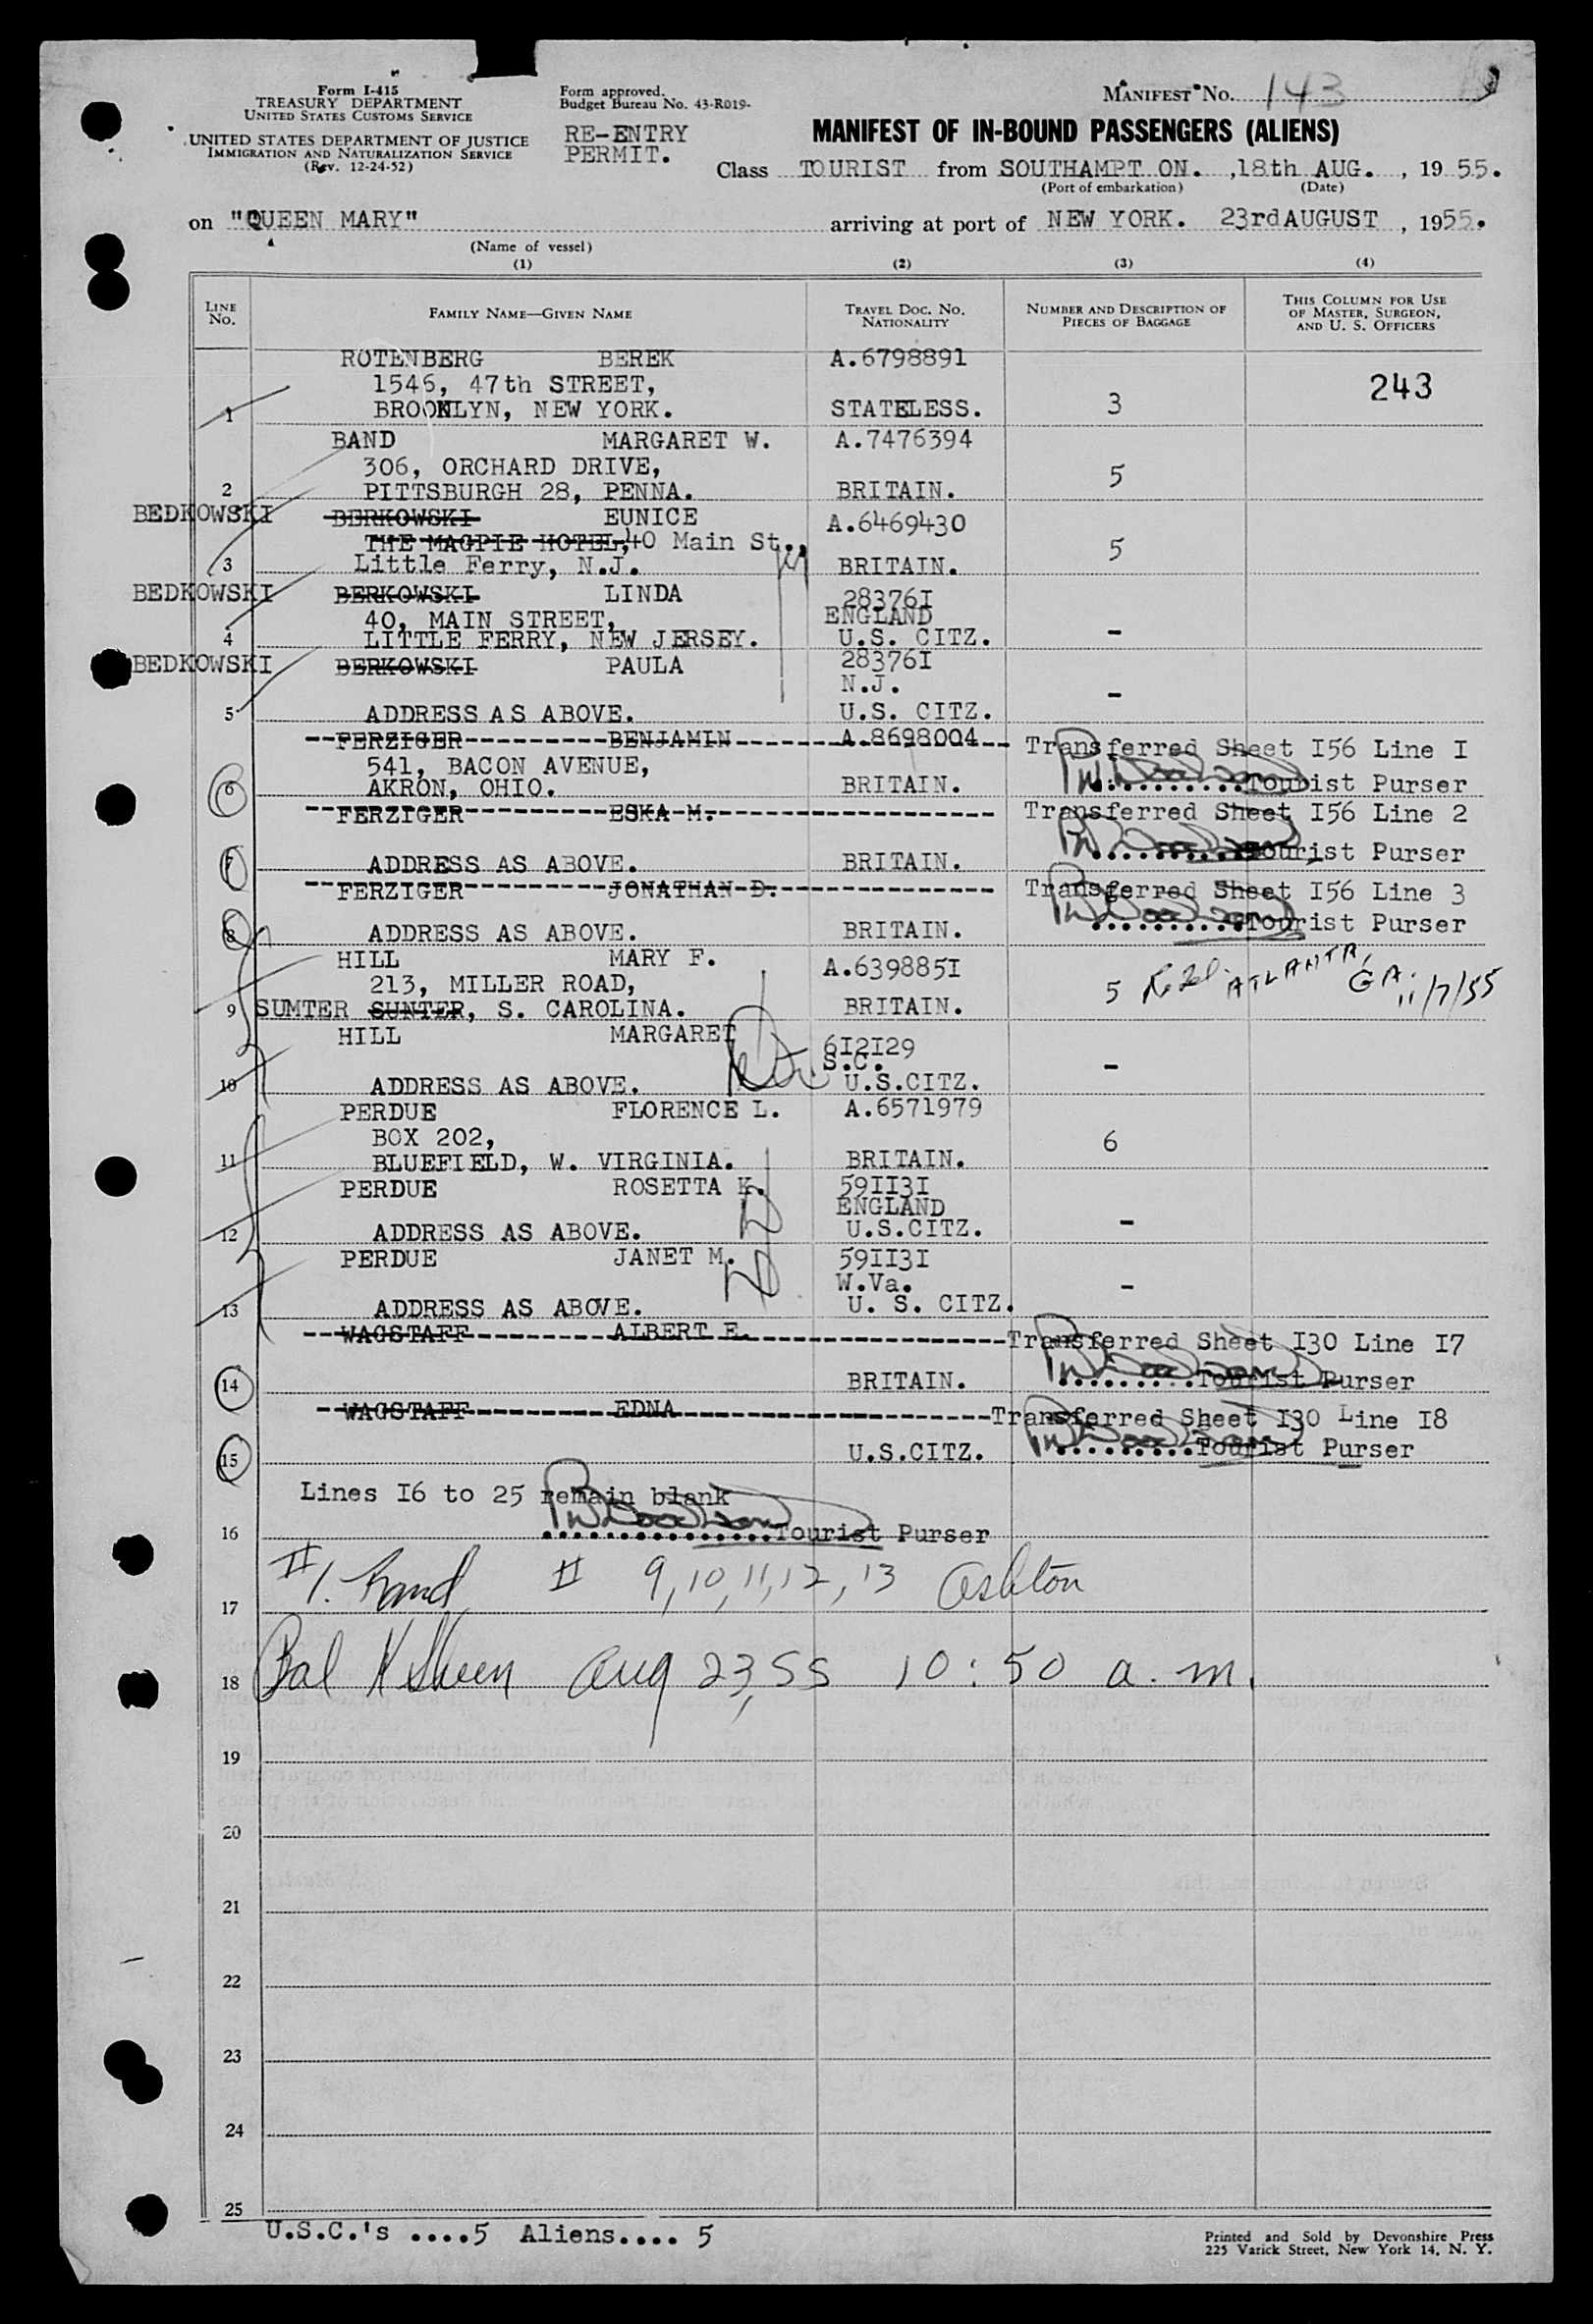 Form I-415
TREASURY DEPARTMENT
UNITED STATES CUSTOMS SERVICE
UNITED STATES DEPARTMENT OF JUSTICE
IMMIGRATION AND NATURALIZATION SERVICE
(Rev. 12-24-52)
Form approved.
Budget Bureau No. 43-R019-
RE-ENTRY
PERMIT.
MANIFEST No. 143
MANIFEST OF IN-BOUND PASSENGERS (ALIENS)
Class TOURIST from SOUTHAMPTON. ,18th AUG. , 1955.
(Port of embarkation) (Date)
on "QUEEN MARY" arriving at port of NEW YORK. 23rd AUGUST , 1955.
(Name of vessel)
(1) (2) (3) (4)
LINE No. FAMILY NAME—GIVEN NAME TRAVEL DOC. NO. NATIONALITY NUMBER AND DESCRIPTION OF PIECES OF BAGGAGE THIS COLUMN FOR USE OF MASTER, SURGEON, AND U. S. OFFICERS
ROTENBERG BEREK A.6798891
1546, 47th STREET, 243
1 BROOKLYN, NEW YORK. STATELESS. 3
BAND MARGARET W. A.7476394
306, ORCHARD DRIVE, 5
2 PITTSBURGH 28, PENNA. BRITAIN.
BEDKOWSKI BERKOWSKI EUNICE A.6469430
THE MAGPIE HOTEL, 40 Main St., 5
3 Little Ferry, N.J. BRITAIN.
BEDKOWSKI BERKOWSKI LINDA 28376I
40, MAIN STREET, ENGLAND
4 LITTLE FERRY, NEW JERSEY. U.S. CITZ. -
BEDKOWSKI BERKOWSKI PAULA 28376I
N.J. -
5 ADDRESS AS ABOVE. U.S. CITZ.
--FERZIGER---------BENJAMIN----------A.8698004-- Transferred Sheet I56 Line I
541, BACON AVENUE,
6 AKRON, OHIO. BRITAIN. ..........Tourist Purser
--FERZIGER---------ESKA M.------------------ Transferred Sheet I56 Line 2
7 ADDRESS AS ABOVE. BRITAIN. ..........Tourist Purser
--FERZIGER---------JONATHAN D.-------------- Transferred Sheet I56 Line 3
8 ADDRESS AS ABOVE. BRITAIN. ..........Tourist Purser
HILL MARY F. A.639885I
213, MILLER ROAD, 5 ATLANTA, GA. 11/7/55
9 SUMTER SUNTER, S. CAROLINA. BRITAIN.
HILL MARGARET 6I2I29
S.C. -
10 ADDRESS AS ABOVE. U.S.CITZ.
PERDUE FLORENCE L. A.6571979
BOX 202, 6
11 BLUEFIELD, W. VIRGINIA. BRITAIN.
PERDUE ROSETTA K. 59II3I
ENGLAND
12 ADDRESS AS ABOVE. U.S.CITZ. -
PERDUE JANET M. 59II3I
W.Va. -
13 ADDRESS AS ABOVE. U. S. CITZ.
--WAGSTAFF---------ALBERT E.----------------Transferred Sheet I30 Line I7
14 BRITAIN. .........Tourist Purser
--WAGSTAFF---------EDNA--------------------Transferred Sheet I30 Line I8
15 U.S.CITZ. .........Tourist Purser
Lines I6 to 25 remain blank
16 ...............Tourist Purser
17 #1. # 9,10,11,12,13 Ashton
18 Bal K Sheen Aug 23,55 10:50 a.m.
19
20
21
22
23
24
25
U.S.C.'s ....5 Aliens.... 5
Printed and Sold by Devonshire Press
225 Varick Street, New York 14, N. Y.